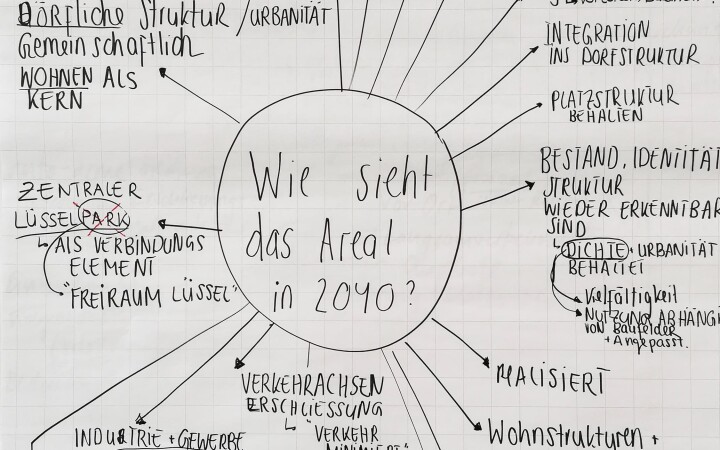 DÖRFLICHE STRUKTUR / URBANITÄT
Gemeinschaftlich
WOHNEN ALS
KERN
INTEGRATION
INS DORFSTRUKTUR
PLATZSTRUKTUR
BEHALTEN
BESTAND, IDENTITÄT
STRUKTUR
WIEDER ERKENNTBAR
SIND
DICHTE + URBANITÄT
BEHALTET
Vielfältigkeit
NUTZUNG ABHÄNGI
VON Baufelder
+ Angepasst.
ZENTRALER
LÜSSELPARK
ALS VERBINDUNGS
ELEMENT
"FREIRAUM LÜSSEL"
Wie sieht
das Areal
in 2040?
REALISIERT
VERKEHRACHSEN
ERSCHLIESSUNG
"VERKEHR
MINIMIERT"
INDUSTRIE + GEWERBE
Wohnstrukturen +